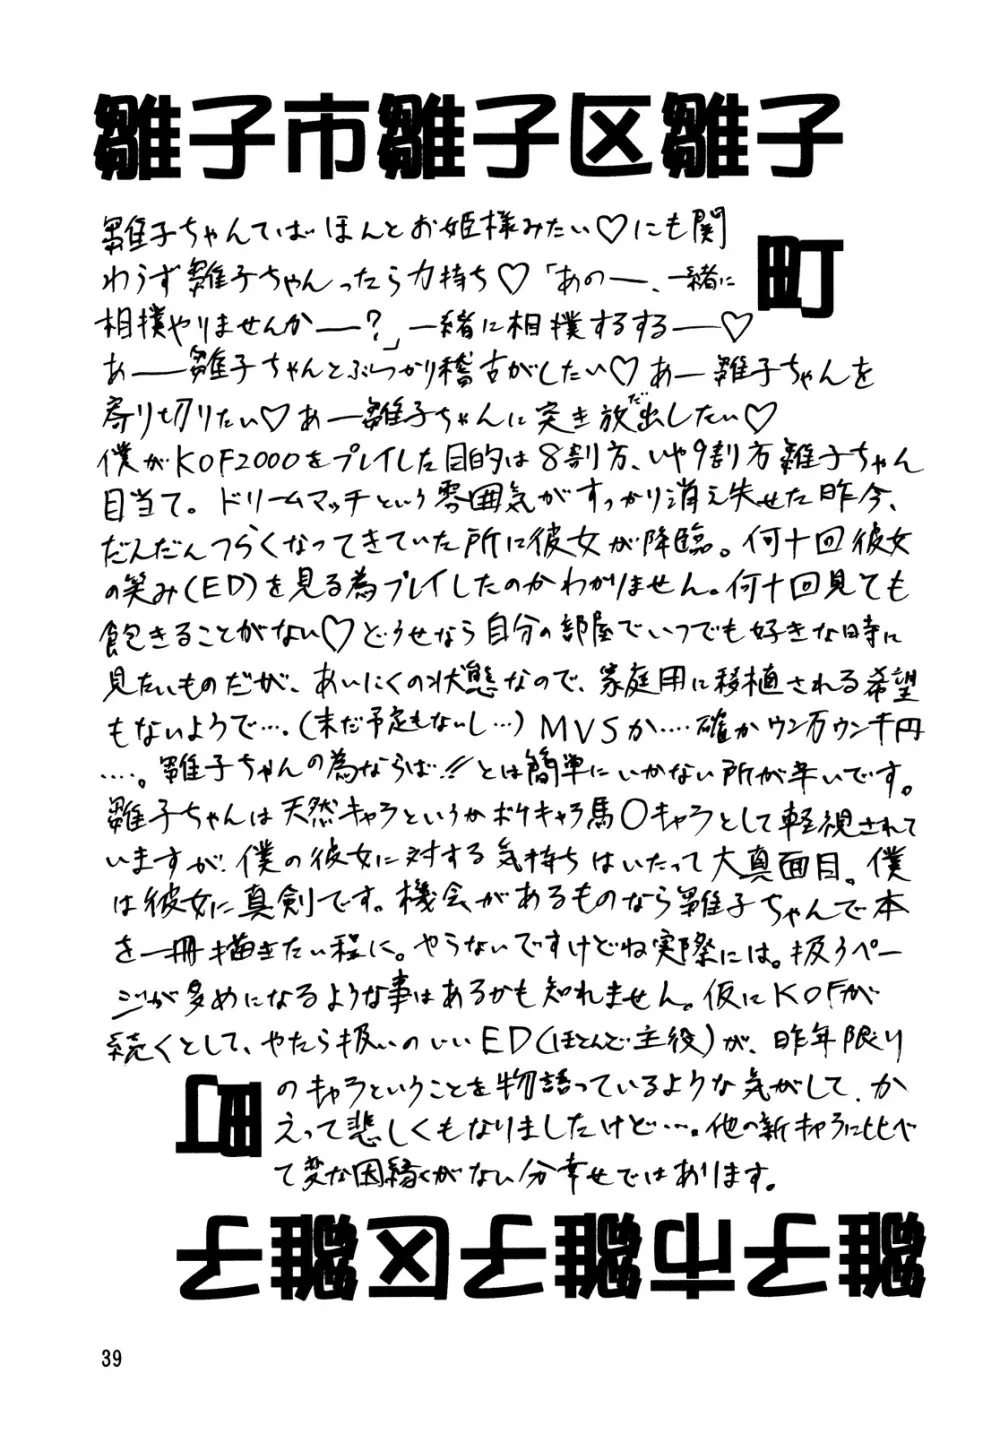 雛子市雛子区雛子
町
雛子ちゃんてばほんとお姫様みたい♡にも関
わらず雛子ちゃんったら力持ち♡「あのー、一緒に
相撲やりませんかー?」一緒に相撲するするー♡
あー雛子ちゃんとぶつかり稽古がしたい♡あー雛子ちゃんを
寄り切りたい♡あー雛子ちゃんに突き放出だしたい♡
僕がKOF2000をプレイした目的は8割方、いや9割方雛子ちゃん
目当て。ドリームマッチという雰囲気がすっかり消え失せた昨今、
だんだんつらくなってきていた所に彼女が降臨。何十回彼女
の笑み(ED)を見る為プレイしたのかわかりません。何十回見ても
飽きることがない♡どうせなら自分の部屋でいつでも好きな時に
見たいものだが、あいにくの状態なので、家庭用に移植される希望
もないようで…。(未だ予定もないし…)MVSか‥‥確かウン万ウン千円
‥‥。雛子ちゃんの為ならば!!とは簡単にいかない所が辛いです。
雛子ちゃんは天然キャラというかボケキャラ馬○キャラとして軽視されて
いますが、僕の彼女に対する気持ちはいたって大真面目。僕
は彼女に真剣です。機会があるものなら雛子ちゃんで本
を一冊描きたい程に。やらないですけどね実際には。扱うペー
ジが多めになるような事はあるかも知れません。仮にKOFが
続くとして、やたら扱いのいいED(ほとんど主役)が、昨年限り
のキャラということを物語っているような気がして、か
えって悲しくもなりましたけど…。他の新キャラに比べ
て変な因縁がない分幸せではあります。
町
雛子市雛子区雛子
39